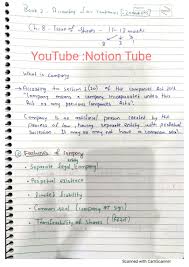 Book 2 : Accounting for companies
Ch. 8 - Issue of Shares - 11-12 marks
YouTube :Notion Tube
What is Company
→ According to section 2(20) of the Companies Act 2013
Company means a company incorporated under this
Act or any previous companies Acts".
Company is an artificial person created by the
process of law having separate entity with perpetual
succession. It may or may not have a common seal.
Features of company
• Separate legal entity
• Perpetual existence
• Limited liability
• Common seal
• Transferability of Shares
Scanned with CamScanner